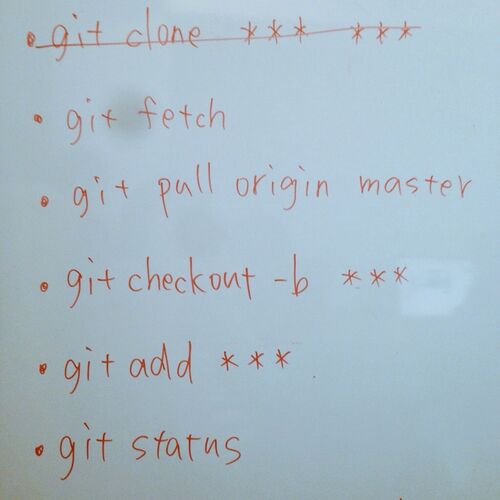 • git clone *** ***
• git fetch
• git pull origin master
• git checkout -b ***
• git add ***
• git status